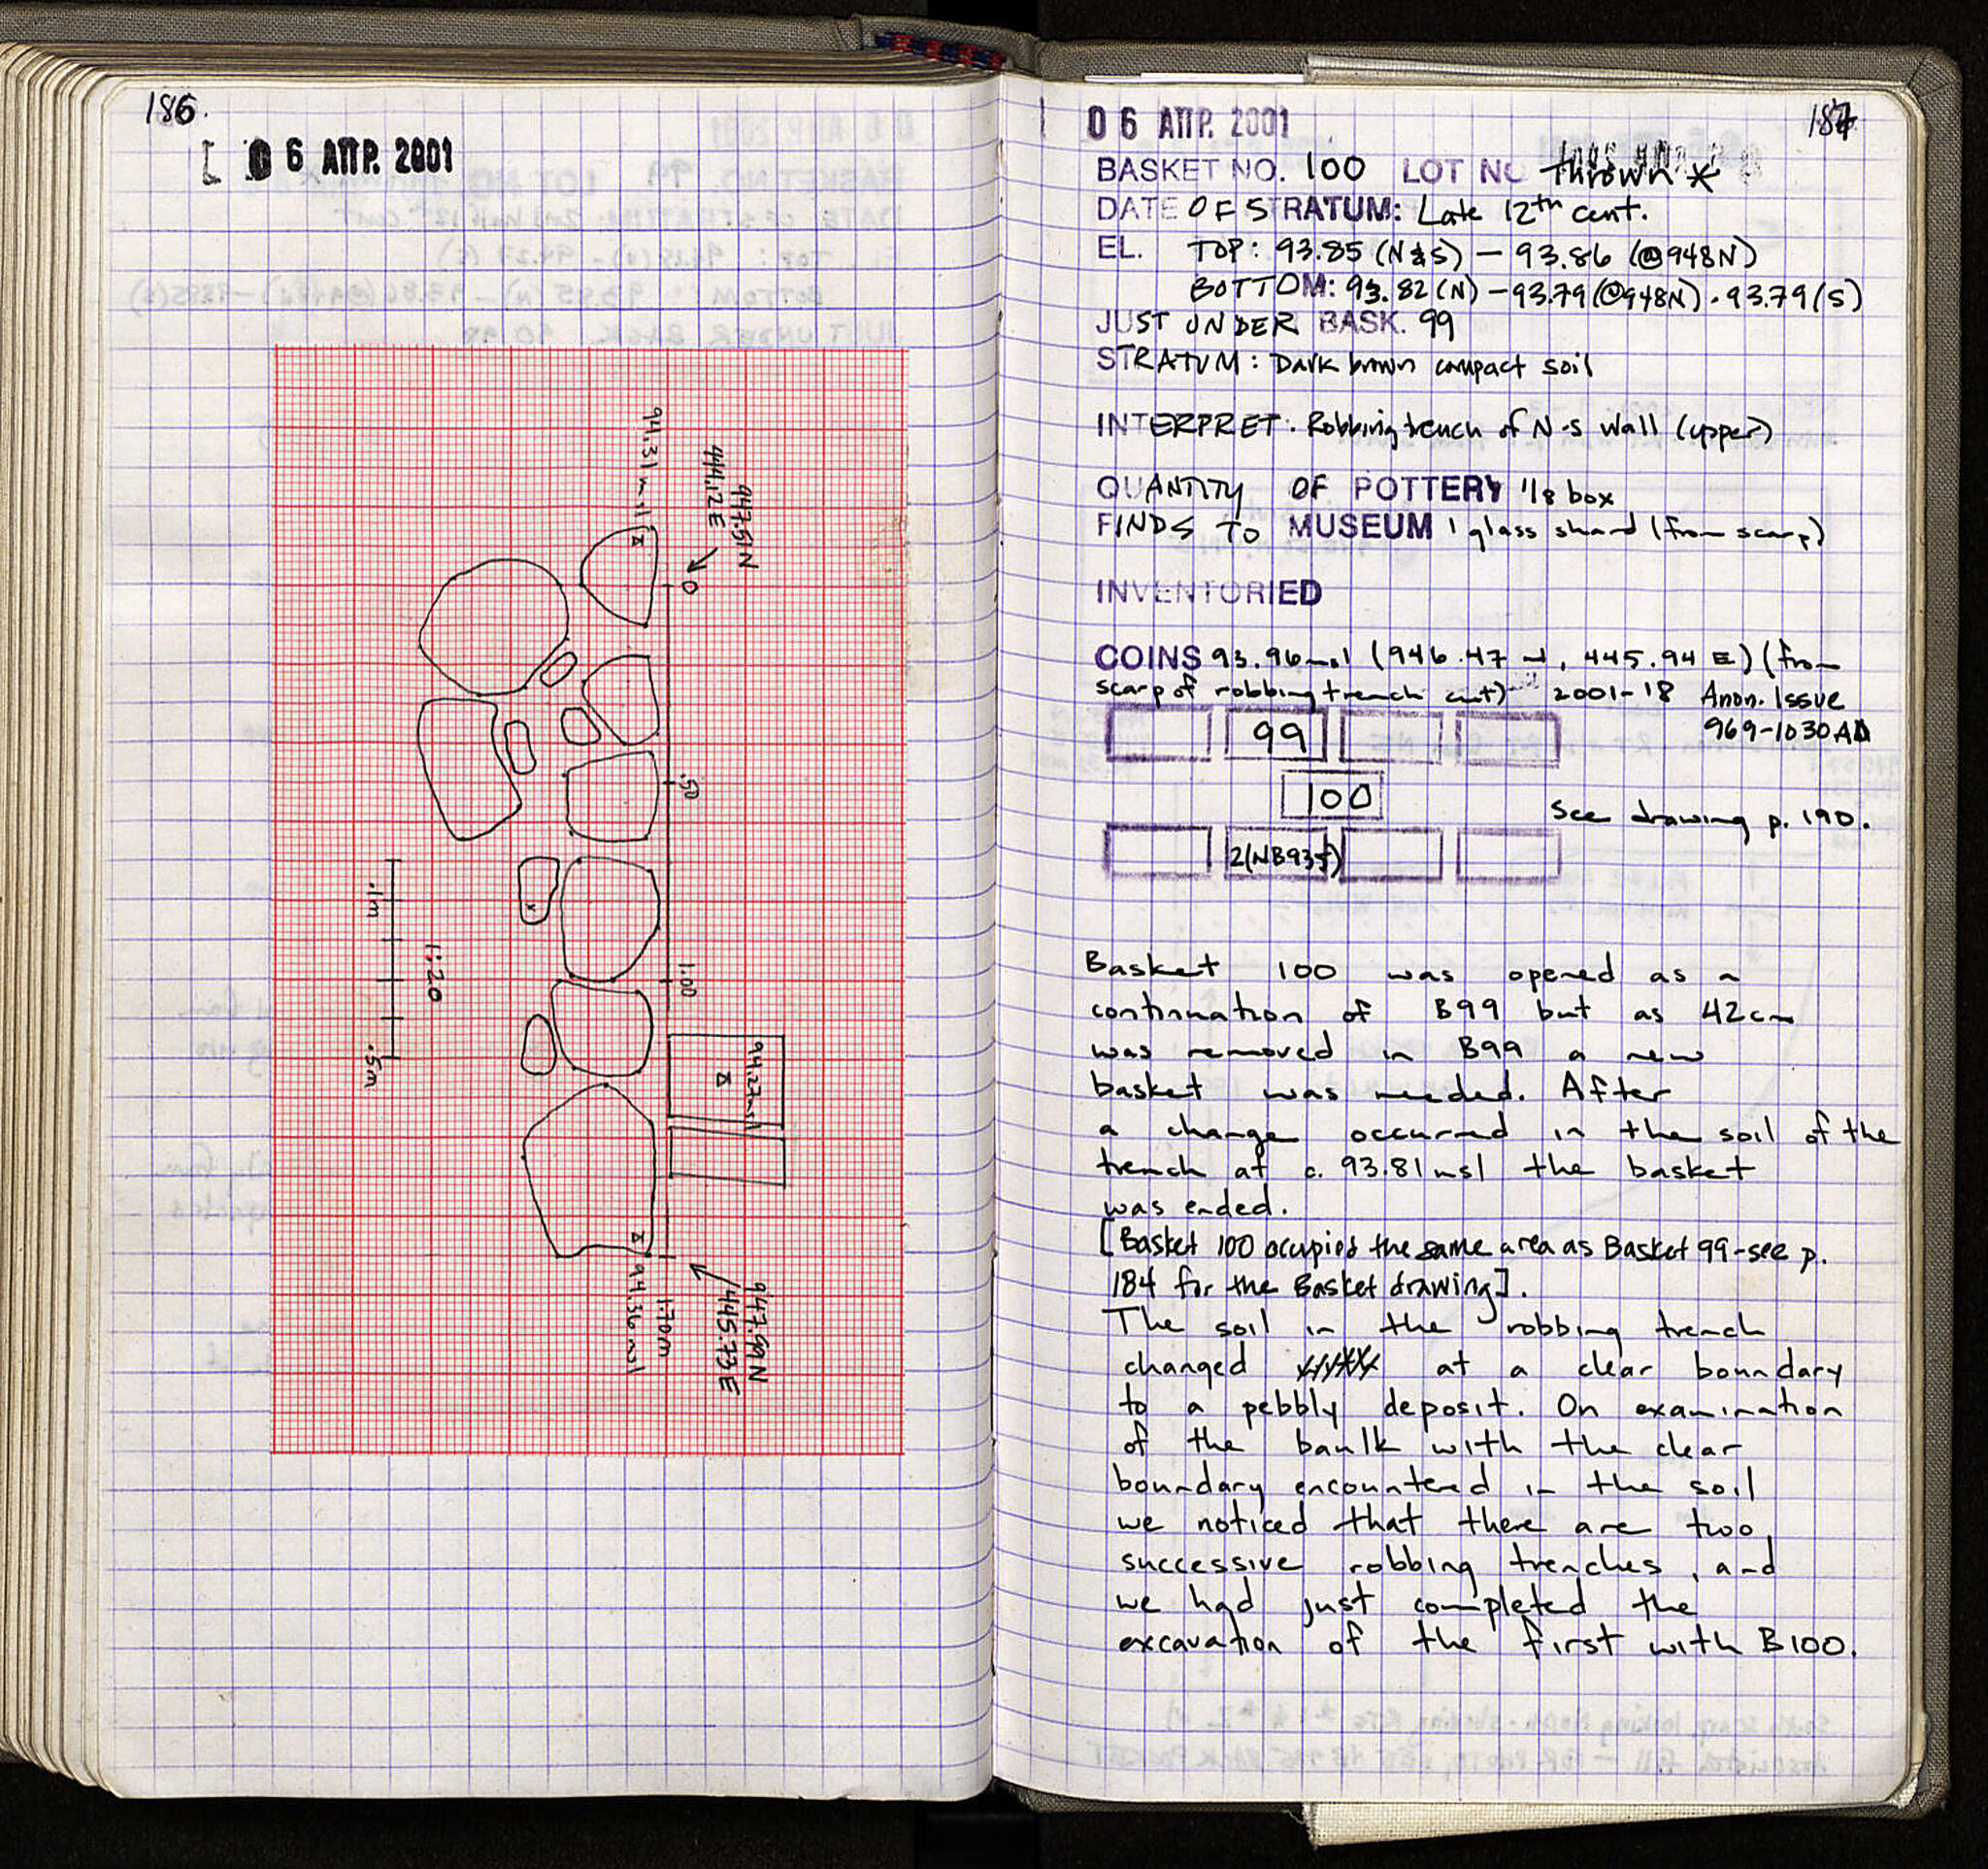 186.
[ 0 6 ΑΠΡ. 2001
94.31 msl
947.51N
444.12E
0
.50
1.00
94.27msl
.1m
1:20
.5m
94.36 msl
1.70m
947.99N
445.73E
187
0 6 ΑΠΡ. 2001
BASKET NO. 100 LOT NO thrown *
DATE OF STRATUM: Late 12th cent.
EL. TOP: 93.85 (N&S) – 93.86 (@948N)
BOTTOM: 93.82 (N) – 93.79 (@948N) . 93.79 (S)
JUST UNDER BASK. 99
STRATUM: Dark brown compact soil
INTERPRET. Robbing trench of N-S wall (upper)
QUANTITY OF POTTERY 1/8 box
FINDS TO MUSEUM 1 glass shard (from scarp)
INVENTORIED
COINS 93.96msl (946.47 N, 445.94 E) (from
scarp of robbing trench cut) 2001-18 Anon. Issue
969-1030 AD
99
100
See drawing p. 190.
2(NB935)
Basket 100 was opened as a
continuation of B99 but as 42cm
was removed in B99 a new
basket was needed. After
a change occurred in the soil of the
trench at c. 93.81 msl the basket
was ended.
[Basket 100 occupied the same area as Basket 99 - see p.
184 for the Basket drawing].
The soil in the robbing trench
changed at a clear boundary
to a pebbly deposit. On examination
of the baulk with the clear
boundary encountered in the soil
we noticed that there are two
successive robbing trenches, and
we had just completed the
excavation of the first with B100.